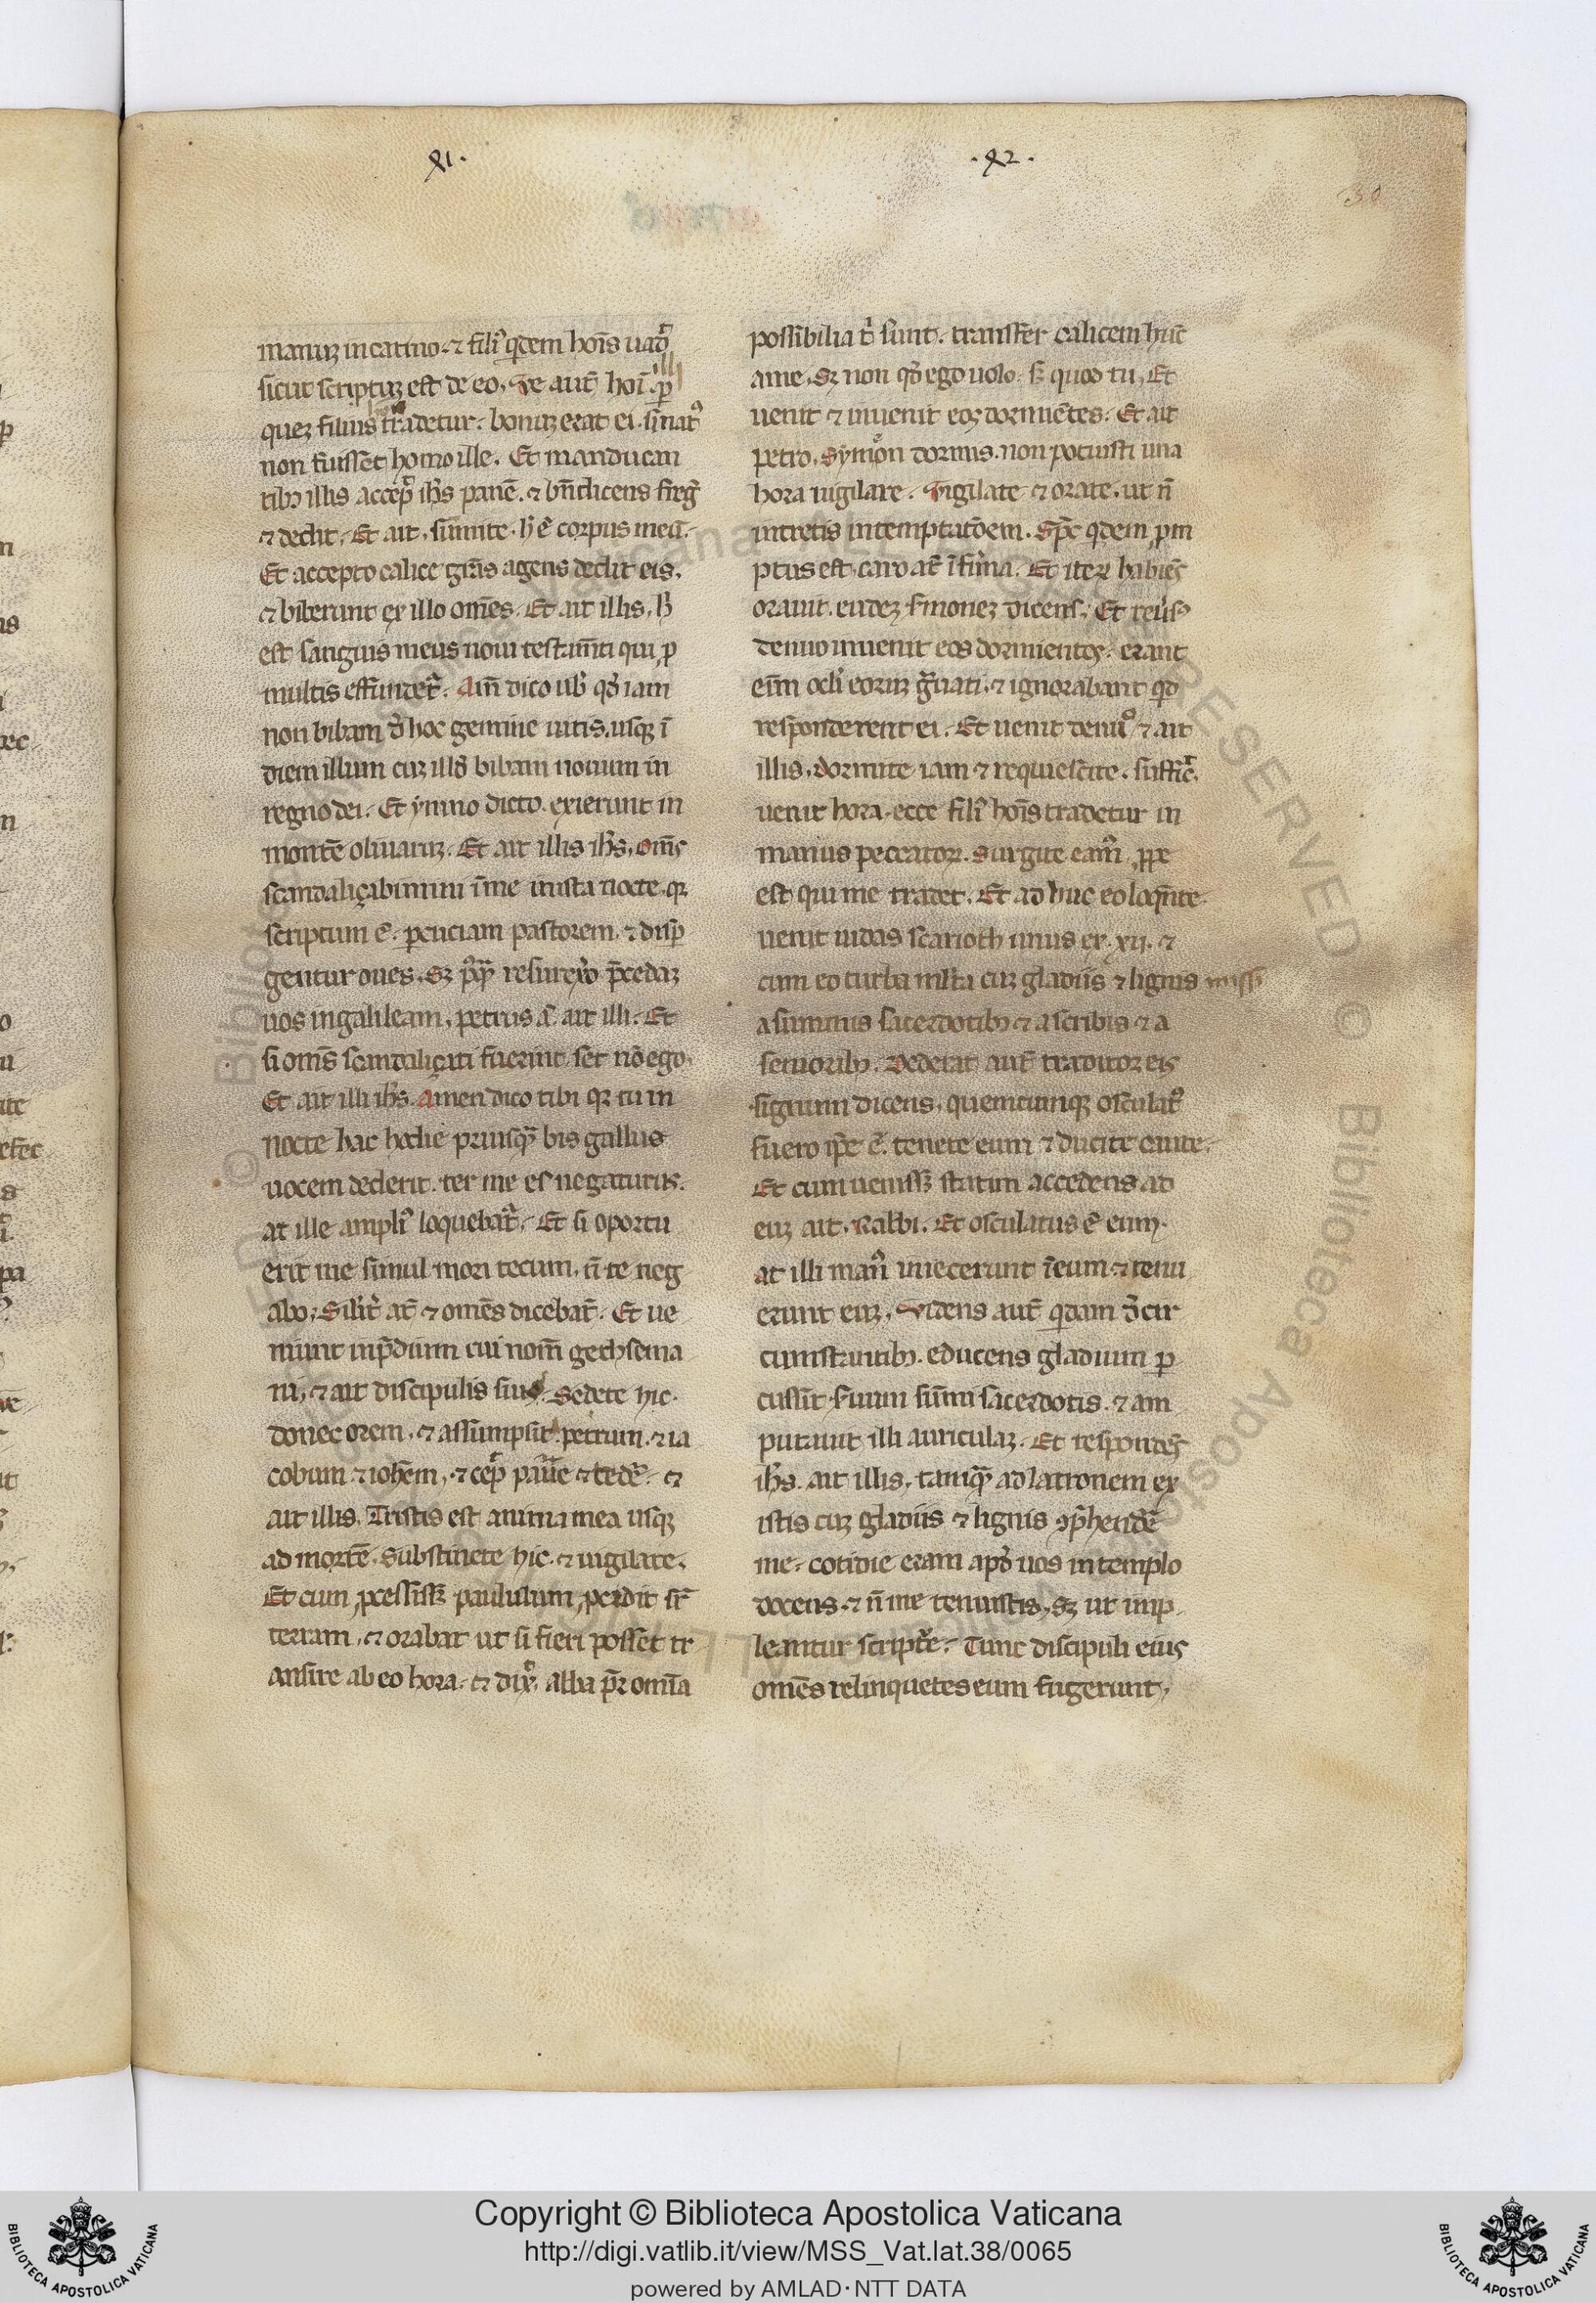 xi.
.x2.
30
manuʒ in catino. ⁊ fili᷒ qͥdem hoı̄s uad̄
sicut scriptuʒ est de eo. Ve aut̄ hoı̄ illi ꝑ
quez filius hoıs tradetur. bonuʒ erat ei. si nat᷒
non fuisset homo ille. Et manducan
tibꝫ illis accep̄ ih̄s panē. ⁊ bn̄dicens freḡ
⁊ dedit. Et ait. sumite. h̄ ē corpus meū.
Et accepto calice grā̄s agens dedit eis.
⁊ biberunt ex illo om̄es. Et ait illis. h̄
est sanguis meus noui testam̄ti qui ꝓ
multis effundet᷑. Am̄ dico uob̄ qd̄ iam
non bibam d̄ hoc gemine uitis. usqꝫ ī
diem illum cuʒ illd̄ bibam nouum in
regno dei. Et ymno dicto. exierunt in
montē oliuaruʒ. Et ait illis ih̄s. om̄s
scandaliçabimini ī me in ista nocte. qꝛ
scriptum ē. percuciam pastorem. ⁊ disp̄
gentur oues. Sʒ p᷒qͣ resurexͦo p̄cedaʒ
uos in galileam. petrus ā. ait illi. Et
si om̄s scandaliçati fuerint. set nō ego.
Et ait illi ih̄s. Amen dico tibi qꝛ tu in
nocte hac hodie priusqͣ bis gallus
uocem dederit. ter me es negaturus.
at ille ampli᷒ loquebat᷑. Et si oportu
erit me simul mori tecum. n̄ te neg
abo. Silit̄ at̄ ⁊ om̄es dicebāt. Et ue
niunt in p̄dium cui nom̄ gethsema
ni. ⁊ ait discipulis suis. Sedete hic.
donec orem. ⁊ assumpsit petrum. ⁊ ia
cobum ⁊ ioh̄em. ⁊ cep̄ pauē ⁊ tedē. ⁊
ait illis. Tristis est anima mea usqꝫ
ad mortē. Substinete hic. ⁊ uigilate.
Et cum ꝓcessissʒ paululum ꝓcidit sr̄
terram. ⁊ orabat ut si fieri posset tr
ansire ab eo hora. ⁊ dix̄. abba p̄r omīa
possibilia t͛ sunt. transfer calicem hūc
a me. Sʒ non qd̄ ego uolo. sʒ quod tu. Et
uenit ⁊ inuenit eoʒ dormiētes. Et ait
petro. Symōn dormis. non potuisti una
hora uigilare. Vigilate ⁊ orate. ut n̄
intretis in temptatōem. Sp̄c qͥdem ꝓm
ptus est. caro at̄ īfirma. Et iteꝝ habiēs
orauit. eundeʒ ẜmoneʒ dicens. Et reuīs᷒
denuo inuenit eos dormientes. erant
eīm ocl̄i eoruʒ gͣuati. ⁊ ignorabant qͥd
responderent ei. Et uenit denuͦo ⁊ ait
illis. dormite iam ⁊ requiescite. suffic̄.
uenit hora. ecce fili᷒ hoı̄s tradetur in
manus peccatoꝝ. Surgite eam᷒ ꝓpe
est qui me tradet. Et ad huc eo loqn̄te.
uenit iudas scarioth unus ex .xii. ⁊
cum eo turba mlta cuʒ gladiis ⁊ lignis missi
a summis sacerdotibꝫ ⁊ a scribis ⁊ a
senioribꝫ. Dederat aut̄ traditor eis
signum dicens. quemcumqꝫ osculat᷒
fuero ip̄e ē. tenete eum ⁊ ducite caute.
Et cum uenissʒ statim accedens ad
euʒ ait. Rabbi. Et osculatus ē eum.
at illi man᷒ iniecerunt ī eum. ⁊ tenu
erunt euʒ. Videns aut̄ qͥdam d̄ cir
cumstantibꝫ. educens gladium ꝑ
cussit ẜuum sūmi sacerdotis. ⁊ am
putauit illi auriculaʒ. Et respondēs
ih̄s. ait illis. tanqͣ ad latronem ex
istis cuʒ gladiis ⁊ lignis ꝯp̄hendē
me. cotidie eram apd̄ uos in templo
docens. ⁊ n̄ me tenuistis. sʒ ut imp
leantur scriptr̄e. Tunc discipuli eius
om̄es relinquetes eum fugerunt.
Copyright © Biblioteca Apostolica Vaticana
http://digi.vatlib.it/view/MSS_Vat.lat.38/0065
powered by AMLAD·NTT DATA
BIBLIOTECA APOSTOLICA VATICANA
BIBLIOTECA APOSTOLICA VATICANA